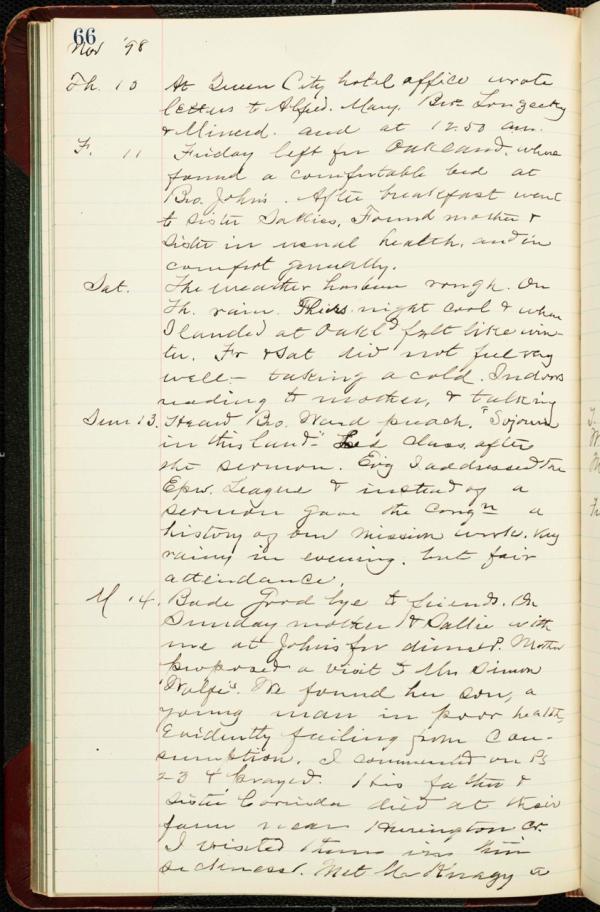 66
Nov '98
Th. 10 At Queen City hotel office wrote
letters to Alfred. Mary. Bro. Longacre
& Minerd. and at 12.50 am.
F. 11 Friday left for Oakland. where
found a comfortable bed at
Bro. John's. After breakfast went
to Sister Sallies. Found mother &
Sister in usual health. and in
comfort generally.
Sat. The weather has been rough. On
Th. rain. Thurs. night cool & when
I landed at Oakld felt like win-
ter. Fr & Sat did not feel very
well - taking a cold. Indoors
reading to mother, & talking
Sun 13. Heard Bro. Ward preach. "Sojourn
in this land" Led class after
the sermon. Evg I addressed the
Epw. League & instead of a
sermon gave the Congn a
history of our mission work. Very
rainy in evening. but fair
attendance.
M. 14. Bade Good bye to friends. On
Sunday mother & Sallie with
me at John's for dinner. Mother
proposed a visit to Mrs Simon
Wolfe's. We found her son, a
young man in poor health,
Evidently failing from Con-
sumption. I commented on Ps
23 & prayed. His father &
Sister Corinda died at their
farm near Herrington Cr.
I visited them in their
sickness. Met Mr Knagy a